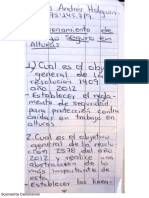 s Andrés Holguín
73.245.719
ionamiento de
go seguro en
Alturas
1.) Cual es el objetivo
general de la
resolución 1409
año 2012
- Establecer el regla-
mento de seguridad
para protección contra
caídas en trabajo en
alturas
2. Cual es el objetivo
general de la resolu-
ción 2578 del año
2012 y realice una
abstracción de lo
mas importante de
esta.
- Establecer los linea-
Scanned by CamScanner